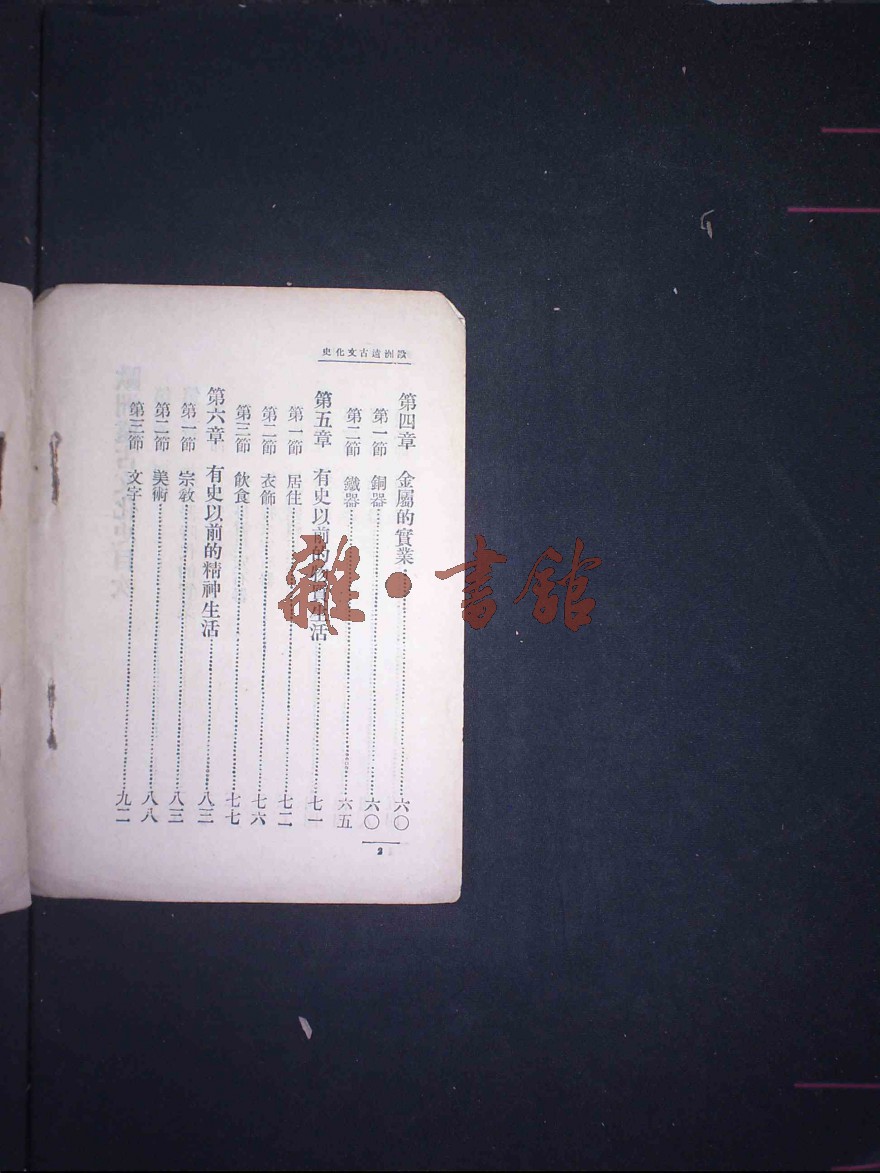 歐洲遠古文化史
第四章　金屬的實業…………六〇
第一節　銅器…………六〇
第二節　鐵器…………六五
第五章　有史以前的物質生活…………七一
第一節　居住…………七二
第二節　衣飾…………七六
第三節　飲食…………七七
第六章　有史以前的精神生活…………八三
第一節　宗教…………八三
第二節　美術…………八八
第三節　文字…………九二
2
雜·書館